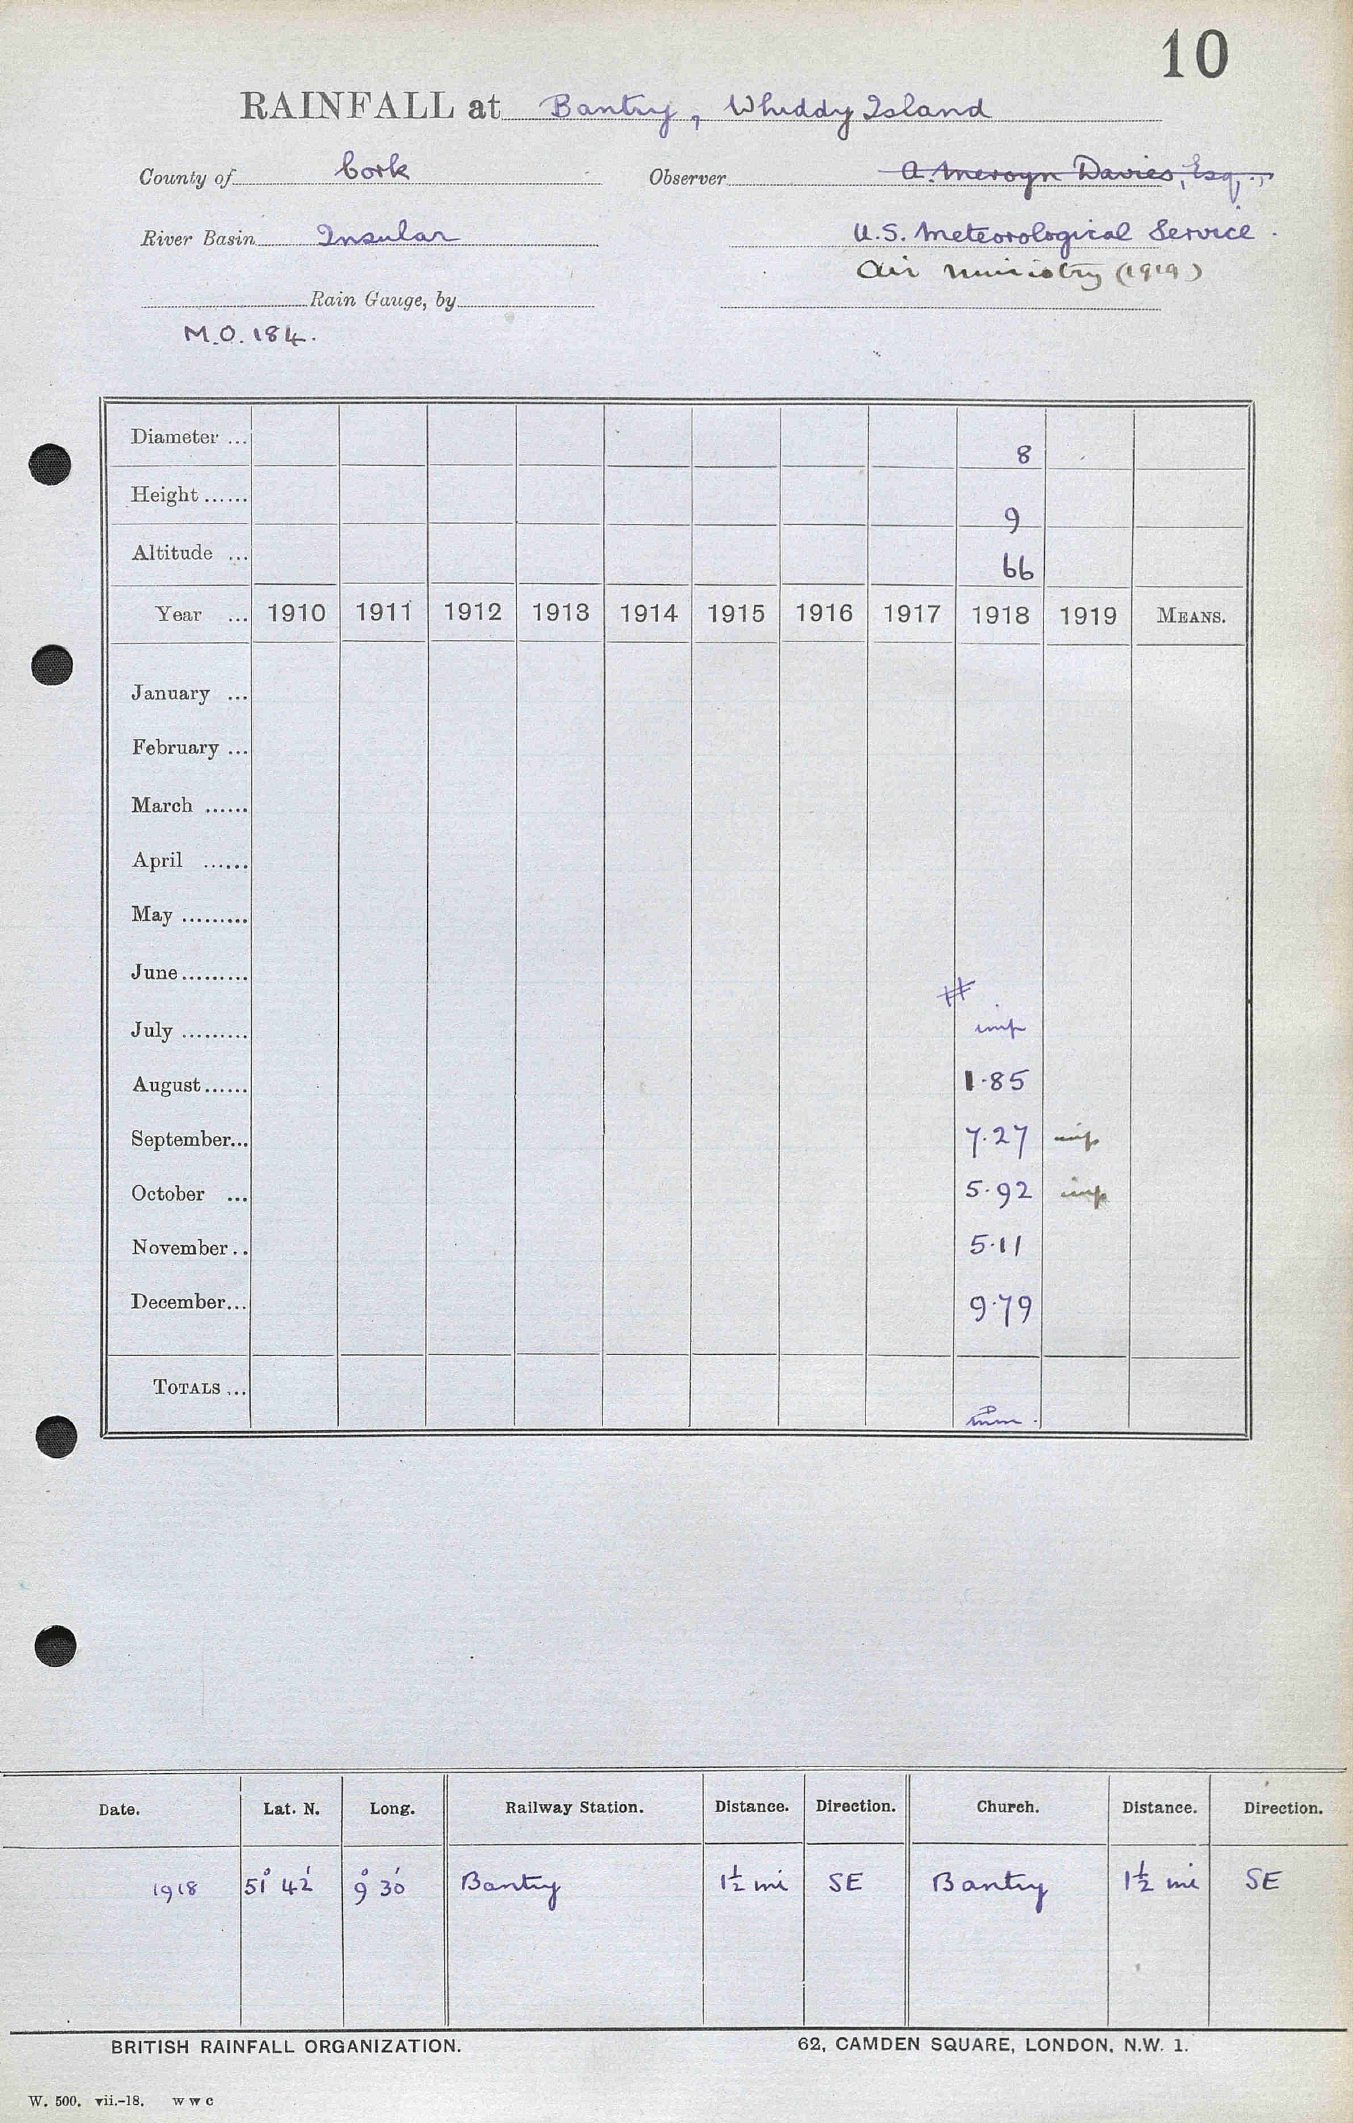 10
RAINFALL at Bantry, Whiddy Island
County of Cork Observer A. Mervyn Davies, Esq.,
River Basin Insular U.S. Meteorological Service.
Air Ministry (1919)
Rain Gauge, by
M.O. 184.
Diameter ... 8
Height ...... 9
Altitude ... 66
Year ... 1910 1911 1912 1913 1914 1915 1916 1917 1918 1919 MEANS.
January ...
February ...
March ......
April ......
May .........
June.........
#
July ......... imp
August...... 1.85
September... 7.27 imp
October ... 5.92 imp
November.. 5.11
December... 9.79
TOTALS ...
Date. Lat. N. Long. Railway Station. Distance. Direction. Church. Distance. Direction.
1918 51° 42' 9° 30' Bantry 1½ mi SE Bantry 1½ mi SE
BRITISH RAINFALL ORGANIZATION. 62, CAMDEN SQUARE, LONDON, N.W. 1.
W. 500. vii.-18. W W C